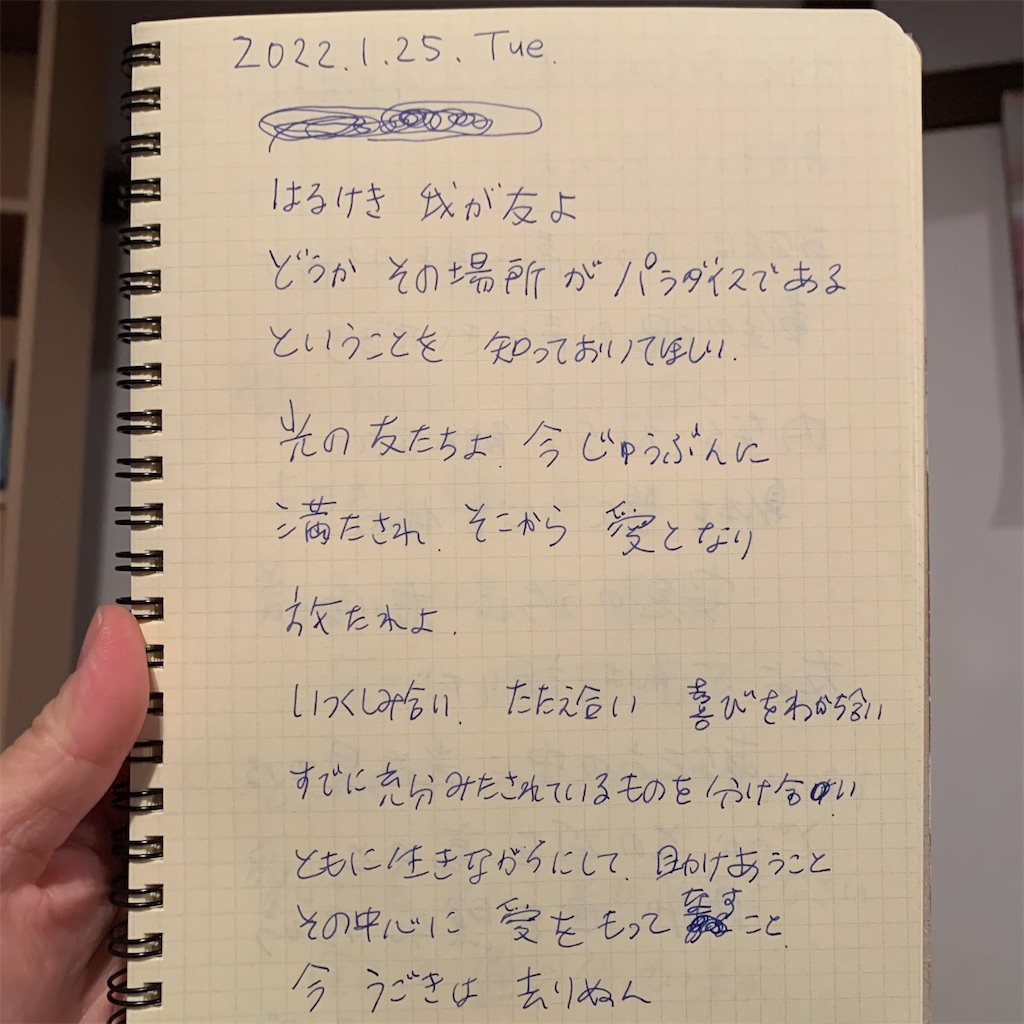 2022.1.25. Tue.
はるけき 我が友よ
どうか その場所 が パラダイスである
ということを 知っておいてほしい.
光の 友たちよ. 今 じゅうぶんに
満たされ. そこから 愛となり
放たれよ.
いつくしみ合い. たたえ合い 喜びをわかち合い
すでに 充分みたされているものを 分け合い
ともに 生きながらにして. 助けあうこと
その中心に 愛を もって なす こと.
今 うごきは 去りぬん